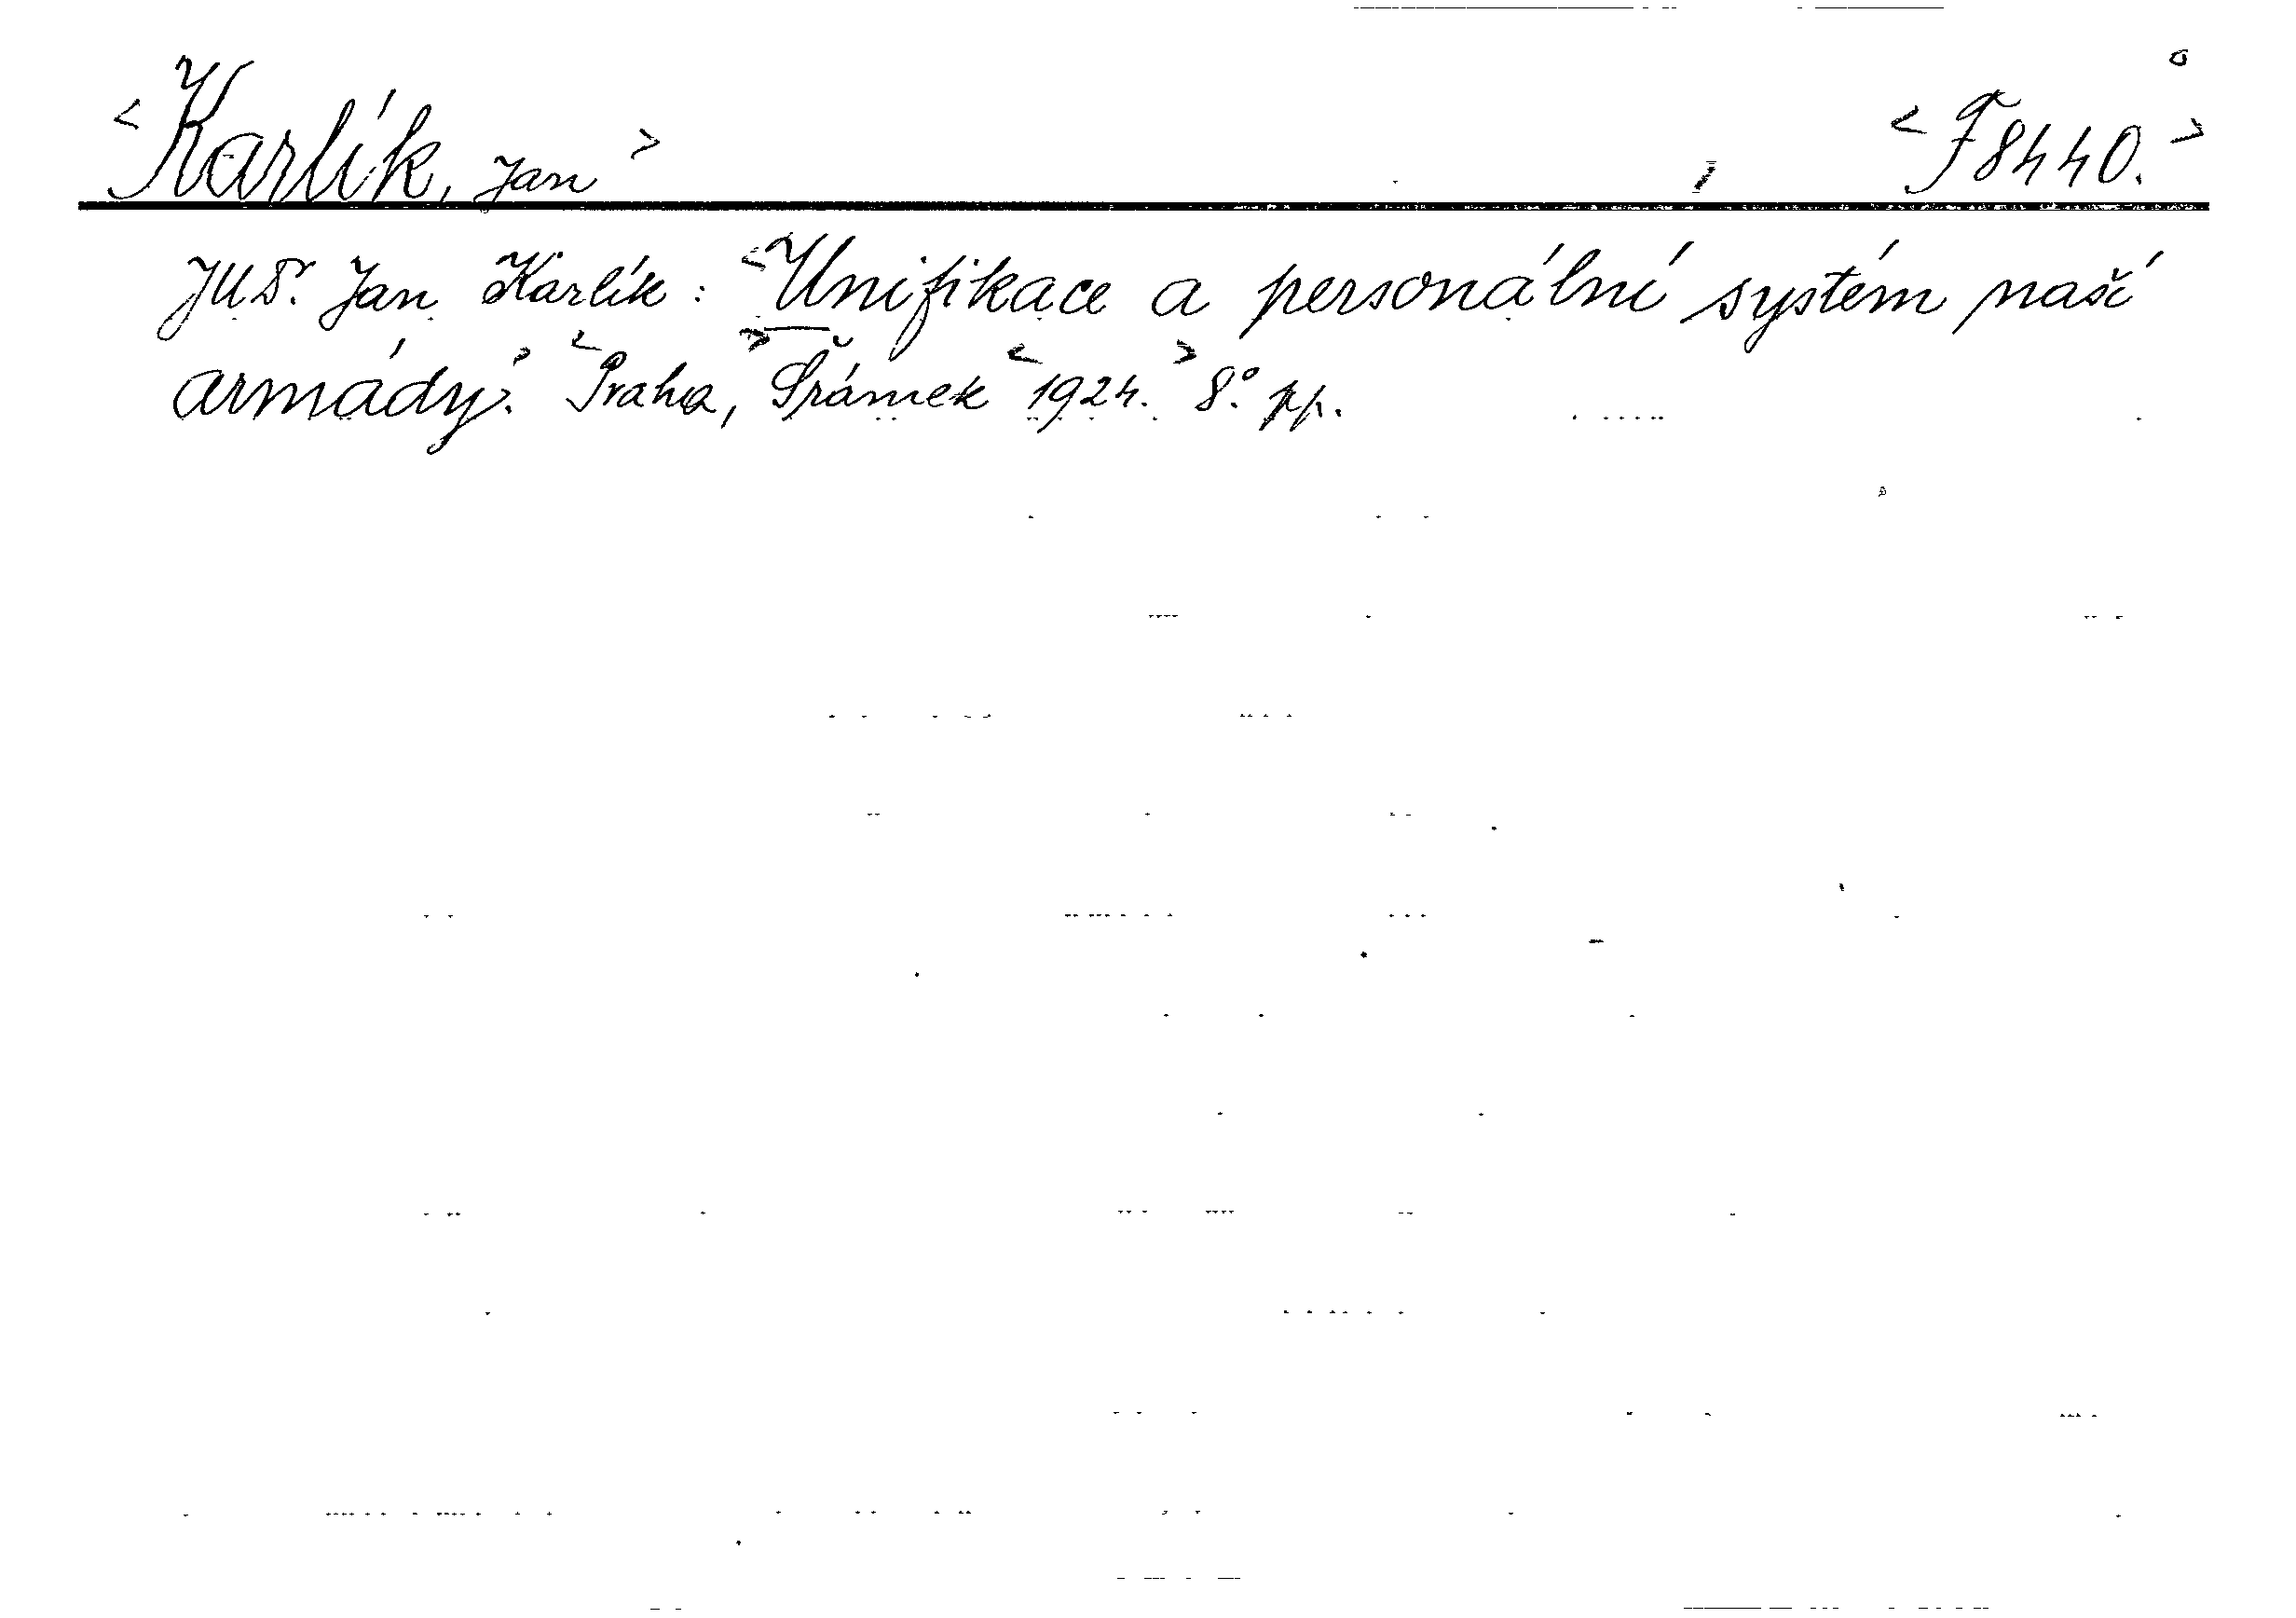 <Karlík, Jan> <F 8440.>
JUDr. Jan Karlík: <Unifikace a personální systém naší
armády.> <Praha,> Šrámek <1924.> 8.° pp.